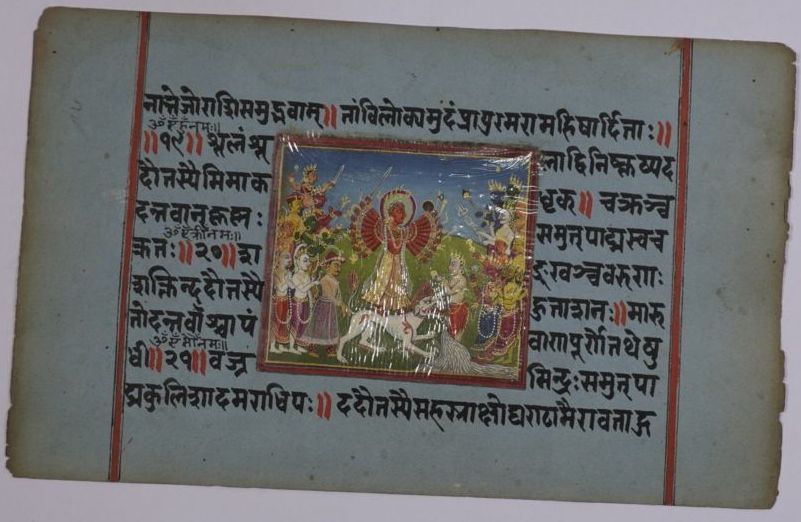 नात्तेजोराशिसमुद्भवाम्॥ तांविलोक्यमुदंप्रापुरमरामहिषार्दिताः॥
ॐ ऐं हुं नमः॥
॥१९॥ शूलंशू लाद्विनिष्कृष्यद
दौतस्यैपिनाक धृक्॥ चक्रञ्च
दत्तवान्कृष्णः समुत्पाद्यस्वच
ॐ ऐं क्रीं नमः॥
क्रतः॥२०॥श ङ्खञ्चवरुणः
शक्तिन्ददौतस्यै हुताशनः॥मारु
तोदत्तवाँश्चापं बाणपूर्णेतथेषु
ॐ ऐं नमः॥
धी॥२१॥वज्र मिन्द्रःसमुत्पा
द्यकुलिशादमराधिपः॥ ददौतस्यैसहस्राक्षोघण्टामैरावताद्ग